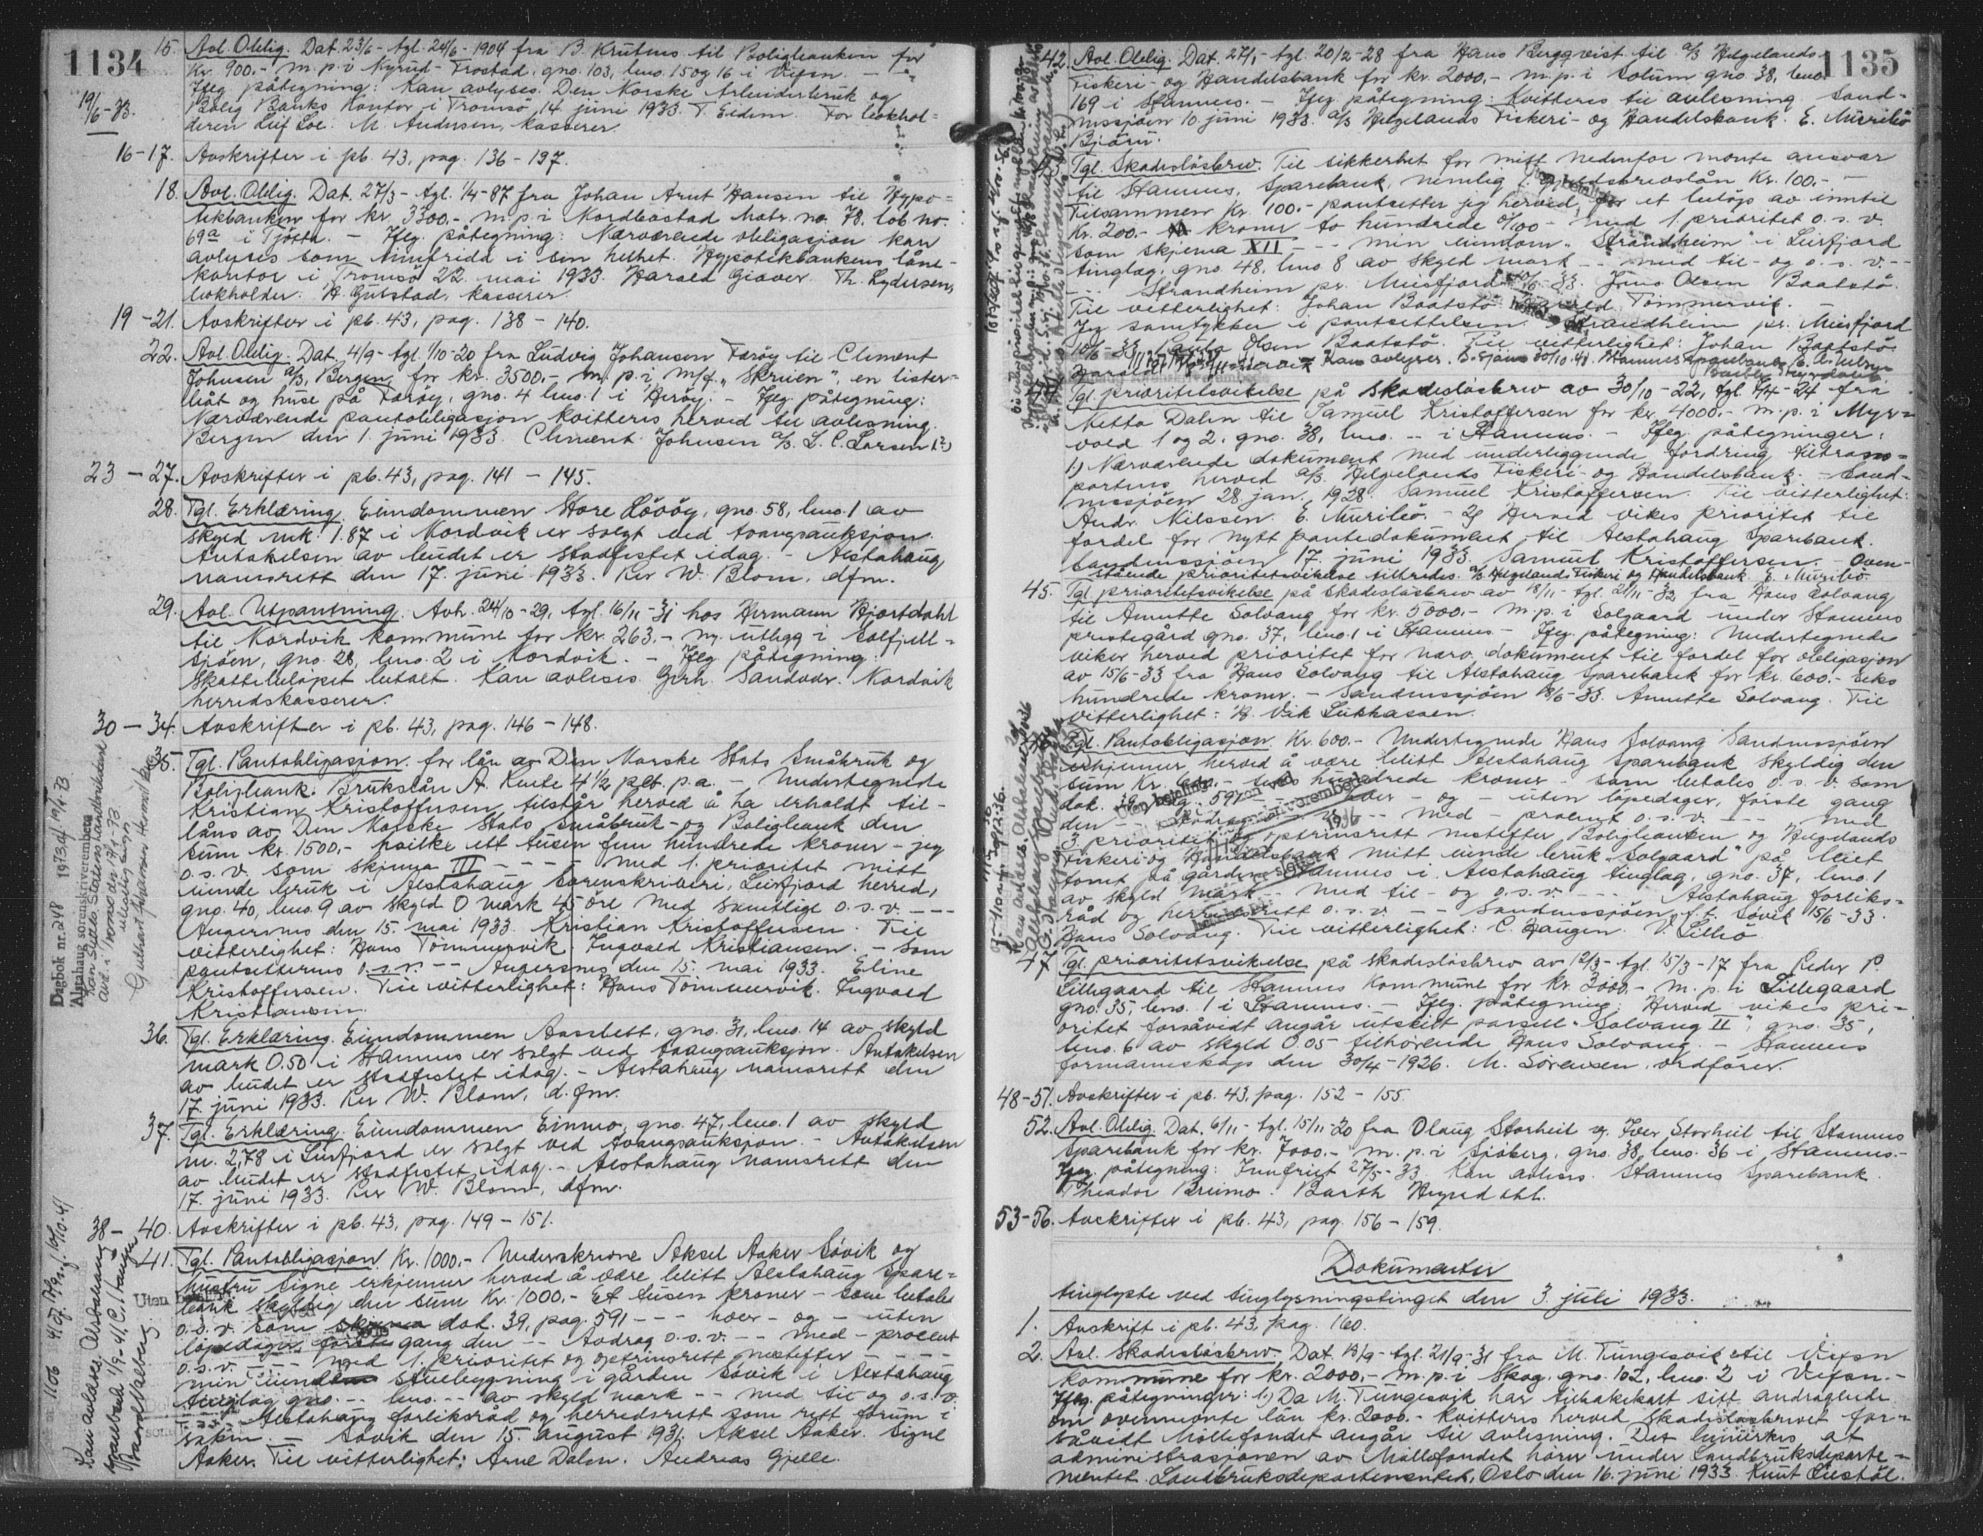 1134
19/6-33.
15. Avl. Oblig. Dat. 23/6 - tgl. 24/6 - 1904 fra B. Krutnes til Boligbanken for
Kr. 900.- m.p. i Nyrud - Frostad, gno. 103, bno. 15 og 16 i Vefsn. -
Iflg. påtegning: Kan avlyses. Den Norske Arbeiderbruk og
Bolig Banks Kontor i Tromsö, 14. juni 1933. T. Eidem. For bokhol=
deren Leif Loe. M. Andersen, kasserer.
16-17. Avskrifter i pb. 43, pag. 136 - 137.
18. Avl. Oblig. Dat. 27/3 - tgl. 1/4 - 87 fra Johan Arnt Hansen til Hypo=
tekbanken for kr. 3300.- m.p. i Nordbostad matr. no. 78. löb no.
69a i Tjötta. - Iflg. påtegning: Nærværende obligasjon kan
avlyses som innfridd i sin helhet. Hypotekbankens låne-
kontor i Tromsö 22. mai 1933. Harald Giæver. Th. Lydersen,
bokholder. H. Gulstad, kasserer.
19 - 21. Avskrifter i pb. 43, pag. 138 - 140.
22. Avl. Oblig. Dat. 4/9 - tgl. 1/10 - 20 fra Ludvig Johansen Færöy til Clement
Johnsen A/S, Bergen, for kr. 3500.- m.p. i m/f. "Skruen", en lister=
båt og huse på Færöy, gno. 4 bno. 1 i Heröy. - Iflg. påtegning:
Nærværende pantobligasjon kvitteres herved til avlesning.
Bergen den 1. juni 1933. Clement Johnsen A/S. L. C. Larsen
23 - 27. Avskrifter i pb. 43, pag. 141 - 145.
28. Tgl. Erklæring. Eiendommen Store Lövöy, gno. 58, bno. 1 av
skyld mk. 1.87 i Nordvik er solgt ved tvangsauksjon.
Antakelsen av budet er stadfestet idag. - Alstahaug
namsrett den 17. juni 1933. Per W. Blom, dfm.
29. Avl. Utpantning. Avh. 24/10 - 29, tgl. 16/11 - 31 hos Hermann Hjortdahl
til Nordvik kommune for kr. 263.- m. utlegg i Sölfjell-
sjöen, gno. 28, bno. 2 i Nordvik. - Iflg. påtegning:
Skattebelöpet betalt. Kan avleses. Gerh. Sandvær. Nordvik
herredskasserer.
30 - 34. Avskrifter i pb. 43, pag. 146 - 148.
35. Tgl. Pantobligasjon for lån av Den Norske Stats Småbruk og
Boligbank. Brukslån A. Rente 4 1/2 pct. p.a. - Undertegnede
Kristian Kristoffersen tilstår herved å ha erholdt til-
låns av Den Norske Stats Småbruk- og Boligbank den
sum kr. 1500,- hvilke ett tusen fem hundrede kroner - jeg
o.s.v. som skjema III - - - - med 1. prioritet mitt
eiende bruk i Alstahaug sorenskriveri, Leirfjord herred,
gno. 40, bno. 9 av skyld 0 mark 45 öre med samtlige o.s.v. - - -
Angersnes den 15. mai 1933. Kristian Kristoffersen. Til
vitterlighet: Hans Tömmervik. Ingvald Kristiansen. - Som
pantsetterens o.s.v. - - Angersnes den 15. mai 1933. Eline
Kristoffersen. Til vitterlighet: Hans Tömmervik. Ingvald
Kristiansen.
36. Tgl. Erklæring. Eiendommen Aasebett, gno. 31, bno. 14 av skyld
mark 0.50 i Stamnes er solgt ved tvangsauksjon. Antakelsen
av budet er stadfestet idag. - Alstahaug namsrett den
17. juni 1933. Per W. Blom, d. fm.
37. Tgl. Erklæring. Eiendommen Einmo, gno. 47, bno. 1 av skyld
m. 2,78 i Leirfjord er solgt ved tvangsauksjon. - Antakelsen
av budet er stadfestet idag. - Alstahaug namsrett den
17. juni 1933. Per W. Blom, dfm.
38 - 40. Avskrifter i pb. 43, pag. 149 - 151.
41. Tgl. Pantobligasjon Kr. 1000.- Underskrevne Aksel Aaker Sövik og
hustru Signe erkjenner herved å være blitt Alstahaug Spare=
bank skyldig den sum Kr. 1000,- Et tusen kroner - som betales
o.s.v. som skjema dok. 39, pag. 591 - - - hver - og - uten
löpedager, förste gang den - - Avdrag o.s.v. - - med - procent
o.s.v. - - - med 1. prioritet og optrinsrett nestefter - - - -
min eiendom stuebygning i gården Sövik i Alstahaug
tinglag gno. - bno. - - av skyld mark - - med til og o.s.v.
- - Alstahaug forliksråd og herredsrett som rett forum i
saken. - Sövik den 15. august 1931. Aksel Aaker. Signe
Aaker. Til vitterlighet: Arne Dalen. Andreas Gjelle.
Dagbok nr. 248 1973
Alstahaug sorenskriverembete
1135
42. Avl. Oblig. Dat. 27/1 - tgl. 20/2 - 28 fra Hans Bergqvist til A/S Helgelands
Fiskeri - og Handelsbank for kr. 2000,- m.p. i Solum gno. 38, bno.
169 i Stamnes. - Iflg. påtegning: Kvitteres til avlesning. Sand-
nessjöen 10. juni 1933. A/S Helgelands Fiskeri- og Handelsbank. E. Meisfjord
Tgl. Skadeslösbrev. Til sikkerhet for mitt nedenfor nevnte ansvar
til Stamnes Sparebank, nemlig: Gjeldsbrevslån Kr. 100.- -
Tilsammen Kr. 100.- pantsetter jeg herved, for et belöp av inntil
Kr. 200.- kroner to hundrede 0/100 - med 1. prioritet o.s.v.
som skjema XII - - - min eiendom "Strandheim" i Leirfjord
tinglag, gno. 48, bno. 8 av skyld mark - - med til - og o.s.v. - -
- Strandheim pr. Meisfjord 10/6 - 33. Jöns Olsen Baatstö.
Til vitterlighet: Johan Baatstö. Tömmervik. -
Jeg samtykker i pantsettelsen. Strandheim pr. Meisfjord
10/6 - 33. Olsen Baatstö. Til vitterlighet: Johan Baatstö.
Tgl. prioritetsvikelse på skadeslösbrev av 30/10 - 22, tgl. 7/4 - 24 fra
Metta Dalen til Samuel Kristoffersen for kr. 4000.- m.p. i Myr=
vold 1 og 2, gno. 38, bno. -- i Stamnes. - Iflg. påtegninger:
1.) Nærværende dokument med underliggende fordring tiltrans=
porteres herved A/S Helgelands Fiskeri- og Handelsbank. - Sand-
nessjöen 28. jan. 1928. Samuel Kristoffersen. Til vitterlighet:
Andr. Nilssen. 2) Herved vikes prioritet til
fordel for nytt pantedokument til Alstahaug Sparebank.
Sandnessjöen 17. juni 1933. Samuel Kristoffersen. - Oven-
stående prioritetsvikelse tiltredes. A/S Helgeland Fiskeri og Handelsbank.
45. Tgl. prioritetsvikelse på skadeslösbrev av 18/11 - tgl. 21/11 - 32 fra Hans Solvang
til Annette Solvang for kr. 5000.- m.p. i Solgaard under Stamnes
prestegård gno. 37, bno. 1 i Stamnes - Iflg. påtegning: Undertegnede
viker herved prioritet for nærv. dokument til fordel for obligasjon
av 15/6 - 33 fra Hans Solvang til Alstahaug Sparebank for kr. 600.- Seks
hundrede kroner. - Sandnessjöen 18/6 - 33. Annette Solvang. Til
vitterlighet: H. Vik Lukkassen.
Tgl. Pantobligasjon Kr. 600.- Undertegnede Hans Solvang Sandnessjöen
erkjenner herved å være blitt Alstahaug Sparebank skyldig den
sum Kr. 600.- seks hundrede kroner - som betales o.s.v. som
dok. 39, pag. 591 - - hver - og - uten löpedager, förste gang
den - Avdrag o.s.v. - - med - procent o.s.v. - - - med
3. prioritet og optrinsrett nestefter Boligbanken og Helgelands
Fiskeri og Handelsbank mitt eiende bruk "Solgaard" på leiet
tomt på gården Stamnes i Alstahaug tinglag, gno. 37, bno. 1
av skyld mark - - med til - og o.s.v. - - - Alstahaug forliks-
råd og herredsrett o.s.v. - - Sandnessjöen, f.t. Sövik 15/6 - 33.
Hans Solvang. Til vitterlighet: C. Haugen.
Tgl. prioritetsvikelse på skadeslösbrev av 12/3 - tgl. 15/3 - 17 fra Peder P.
Lillegaard til Stamnes Kommune for kr. 3000.- m.p. i Lillegaard
gno. 35, bno. 1 i Stamnes. - Iflg. påtegning: Herved vikes pri-
oritet forsåvidt angår utskilt parsell "Solvang II", gno. 35,
bno. 6 av skyld 0.05 tilhörende Hans Solvang. - Stamnes
formannskap den 30/4 - 1926. M. Sörensen, ordförer.
48-51. Avskrifter i pb. 43, pag. 152 - 155.
52. Avl. Oblig. Dat. 6/11 - tgl. 15/11 - 20 fra Olaug Storheil og Iver Storheil til Stamnes
Sparebank for kr. 7000.- m.p. i Sjöberg, gno. 38, bno. 36 i Stamnes. -
Iflg. påtegning: Innfriet 27/5 - 33. Kan avleses. Stamnes Sparebank.
Theodor Breimo.
53-56. Avskrifter i pb. 43, pag. 156 - 159.
Dokumenter
tinglyste ved tinglysningstinget den 3. juli 1933.
1. Avskrift i pb. 43, pag. 160.
2. Avl. Skadeslösbrev. Dat. 13/9 - tgl. 21/9 - 31 fra M. Tungesvik til Vefsn
kommune for kr. 2000.- m.p. i Skog, gno. 102, bno. 2 i Vefsn. -
Iflg. påtegninger: 1.) Da M. Tungesvik har tilbakekalt sitt andragende
om ovennevnte lån kr. 2000.- kvitteres herved skadeslösbrevet for-
såvidt Möllefondet angår til avlesning. Det bemerkes, at
administrasjonen av Möllefondet hörer under Landbruksdeparte=
mentet. Landbruksdepartementet, Oslo den 16. juni 1933. Knut Liestöl.